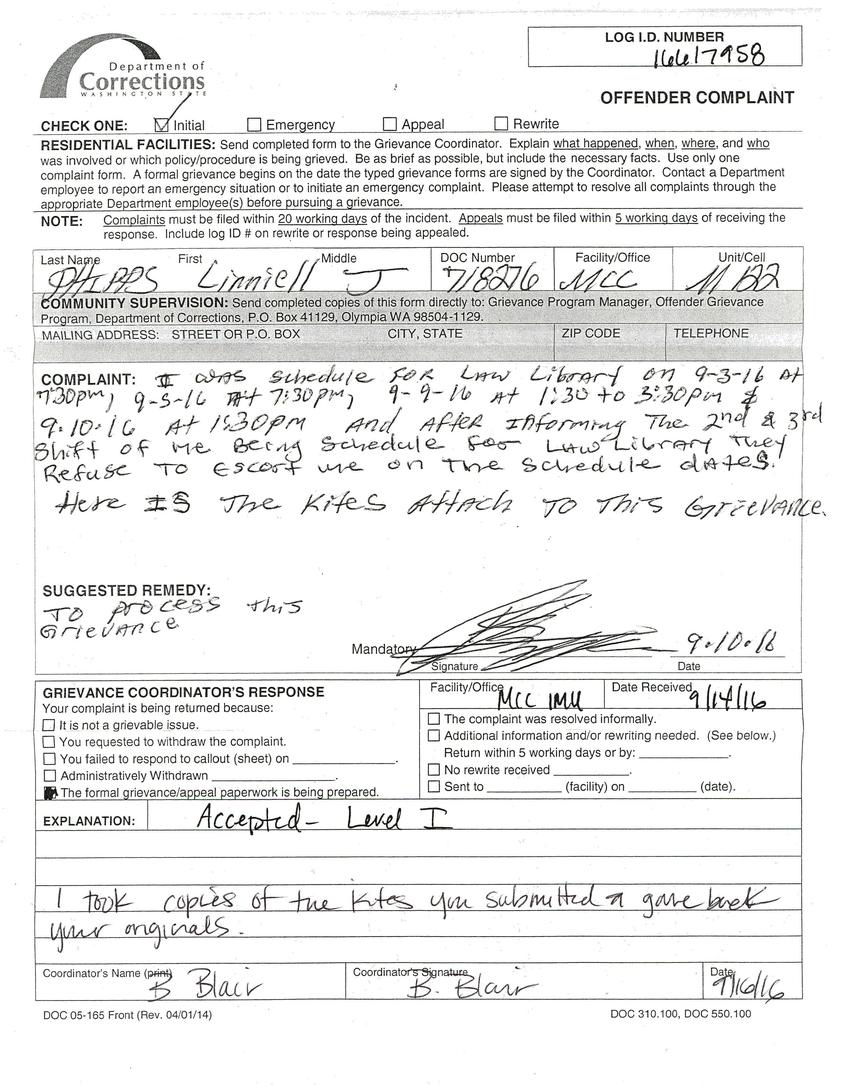 LOG I.D. NUMBER
16617958
Department of
Corrections
WASHINGTON STATE
OFFENDER COMPLAINT
CHECK ONE: Initial Emergency Appeal Rewrite
RESIDENTIAL FACILITIES: Send completed form to the Grievance Coordinator. Explain what happened, when, where, and who
was involved or which policy/procedure is being grieved. Be as brief as possible, but include the necessary facts. Use only one
complaint form. A formal grievance begins on the date the typed grievance forms are signed by the Coordinator. Contact a Department
employee to report an emergency situation or to initiate an emergency complaint. Please attempt to resolve all complaints through the
appropriate Department employee(s) before pursuing a grievance.
NOTE: Complaints must be filed within 20 working days of the incident. Appeals must be filed within 5 working days of receiving the
response. Include log ID # on rewrite or response being appealed.
Last Name First Middle DOC Number Facility/Office Unit/Cell
PHIPPS Linniell J 718276 MCC
COMMUNITY SUPERVISION: Send completed copies of this form directly to: Grievance Program Manager, Offender Grievance
Program, Department of Corrections, P.O. Box 41129, Olympia WA 98504-1129.
MAILING ADDRESS: STREET OR P.O. BOX CITY, STATE ZIP CODE TELEPHONE
COMPLAINT: I was schedule FOR LAW Library on 9-3-16 AT
7:30pm, 9-5-16 AT 7:30pm, 9-9-16 AT 1:30 to 3:30pm &
9-10-16 AT 1:30pm And AFTER INForming The 2nd & 3rd
Shift of me Being Schedule For LAW Library They
Refuse To Escort me on The Schedule dates.
Here IS The Kites Attach To This GrieVANCE.
SUGGESTED REMEDY:
To process this
GrieVANCE
Mandatory 9-10-16
Signature Date
GRIEVANCE COORDINATOR'S RESPONSE
Your complaint is being returned because:
It is not a grievable issue.
You requested to withdraw the complaint.
You failed to respond to callout (sheet) on ____________.
Administratively Withdrawn ____________.
The formal grievance/appeal paperwork is being prepared.
Facility/Office MCC IMU Date Received 9/14/16
The complaint was resolved informally.
Additional information and/or rewriting needed. (See below.)
Return within 5 working days or by: ____________.
No rewrite received ____________.
Sent to ____________ (facility) on ____________ (date).
EXPLANATION: Accepted- Level I
I took copies of the kites you submitted & gave back
your originals.
Coordinator's Name (print) Coordinator's Signature Date
B Blair B. Blair 9/16/16
DOC 05-165 Front (Rev. 04/01/14) DOC 310.100, DOC 550.100